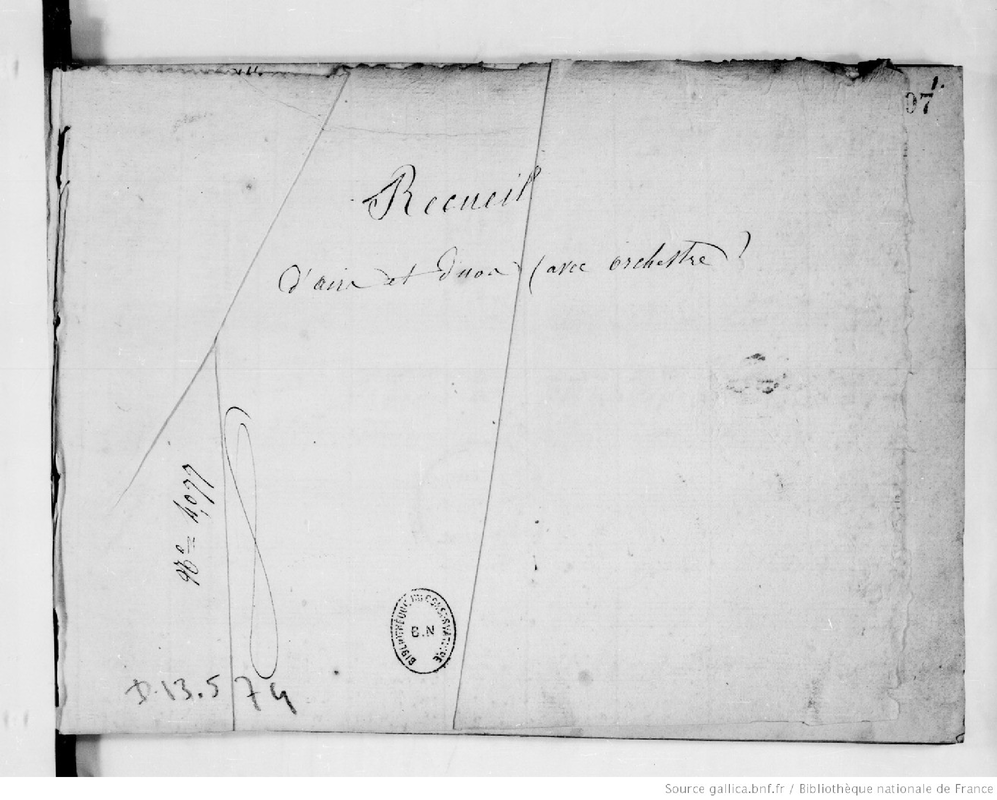 1.
07
Recueil
d'airs et duos (avec orchestre)
D. 13.574
BIBLIOTHÈQUE DU CONSERVATOIRE
B.N
Source gallica.bnf.fr / Bibliothèque nationale de France